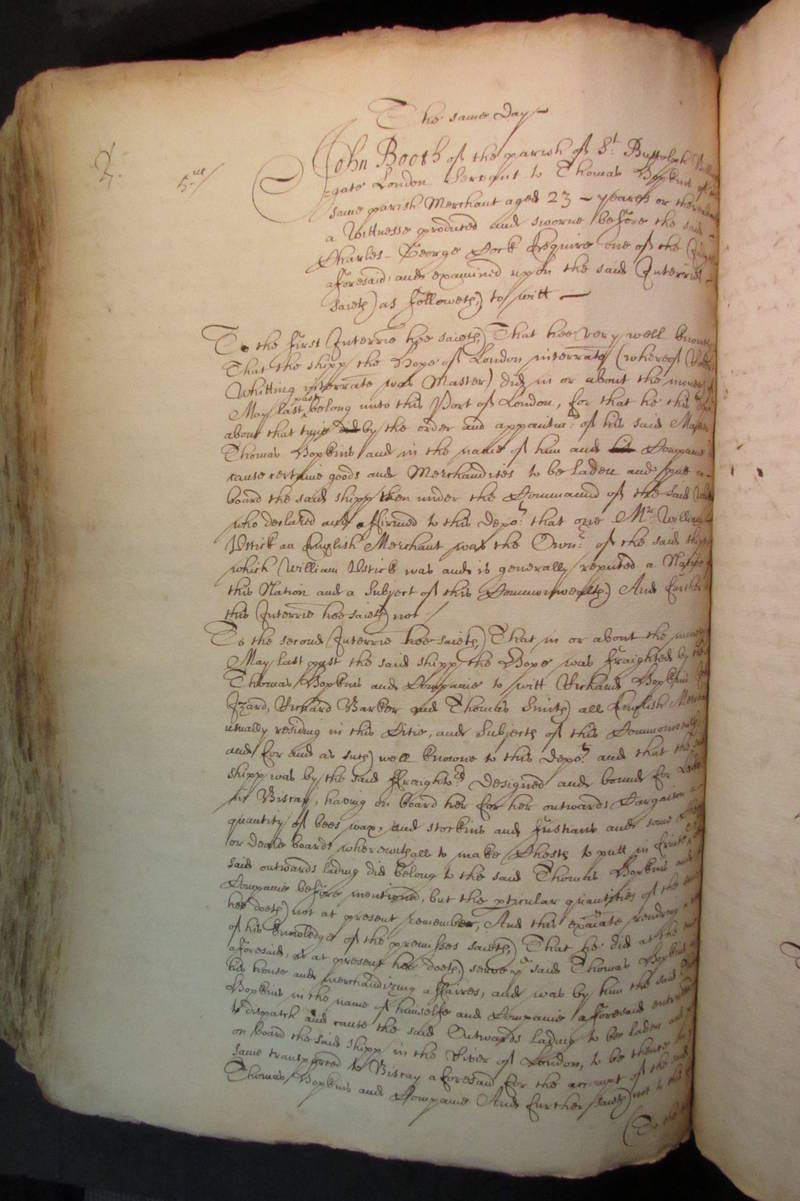 The same day
2.
5.us/
John Booth of the parish of St. Buttolph
=gate London Servant to Thomas Hopkins of
same parish Merchant aged 23 yeares or there
a Wittnesse produced and sworne before the said
Charles George Cock Esquire one of the
aforesaid, and examined upon the said Interries
saieth as followeth, to witt
To the first Interrie hee saieth That hee very well knoweth
That the shipp the Hope of London interrate (whereof
Whitting interrate was Master) did in or about the moneth of
May last past belong unto this Port of London, for that he this
about that tyme by the order and appointmt. of his said Master
Thomas Hopkins and in the name of him and Companie
cause certaine goods and Merchandizes to be laden and put a=
board the said shipp then under the Command of the said
who declared and affirmed to this depot. that one Mr. William
Ustick an English Merchant was the Ownr. of the said shipp
which William Ustick was and is generally reputed a Native
this Nation and a Subject of this Commonwealth And further
this Interrie hee saieth not./
To the second Interrie hee saieth That in or about the moneth
May last past the said shipp the Hope was fraighted by the
Thomas Hopkins and Companie to witt Richard Hopkins
Izard, Richard Barker and Thomas Smith all English
usually residing in this Citie, and Subjects of this Commonwealth
and for and as such well knowne to this depot. and that the said
shipp was by the said ffraightrs. Designed and bound for
in Biscay, having on board her for her outwards Cargaison a
quantity of bees wax, and stockins and fustians and some
or deale boards wherewithall to make Chests to putt in fruite
said outwards lading did belong to the said Thomas Hopkins and
Companie before mentioned, but the pticular quantities of the
hee doeth not at present remember, And this exãiate
of his knowledge of the premisses saieth That he did at the
aforesaid, as at present hee doeth, serve ye said Thomas Hopkins
his house and merchandizing affaires, and was by him the said
Hopkins in the name of himselfe and Companie aforesaid
to dispatch and cause the said Outwards lading to be laden
on board the said shipp in the River of London, to be thence
same transported to Biscay aforesaid for the account of the said
Thomas Hopkins and Companie And further saieth not to this
(To the